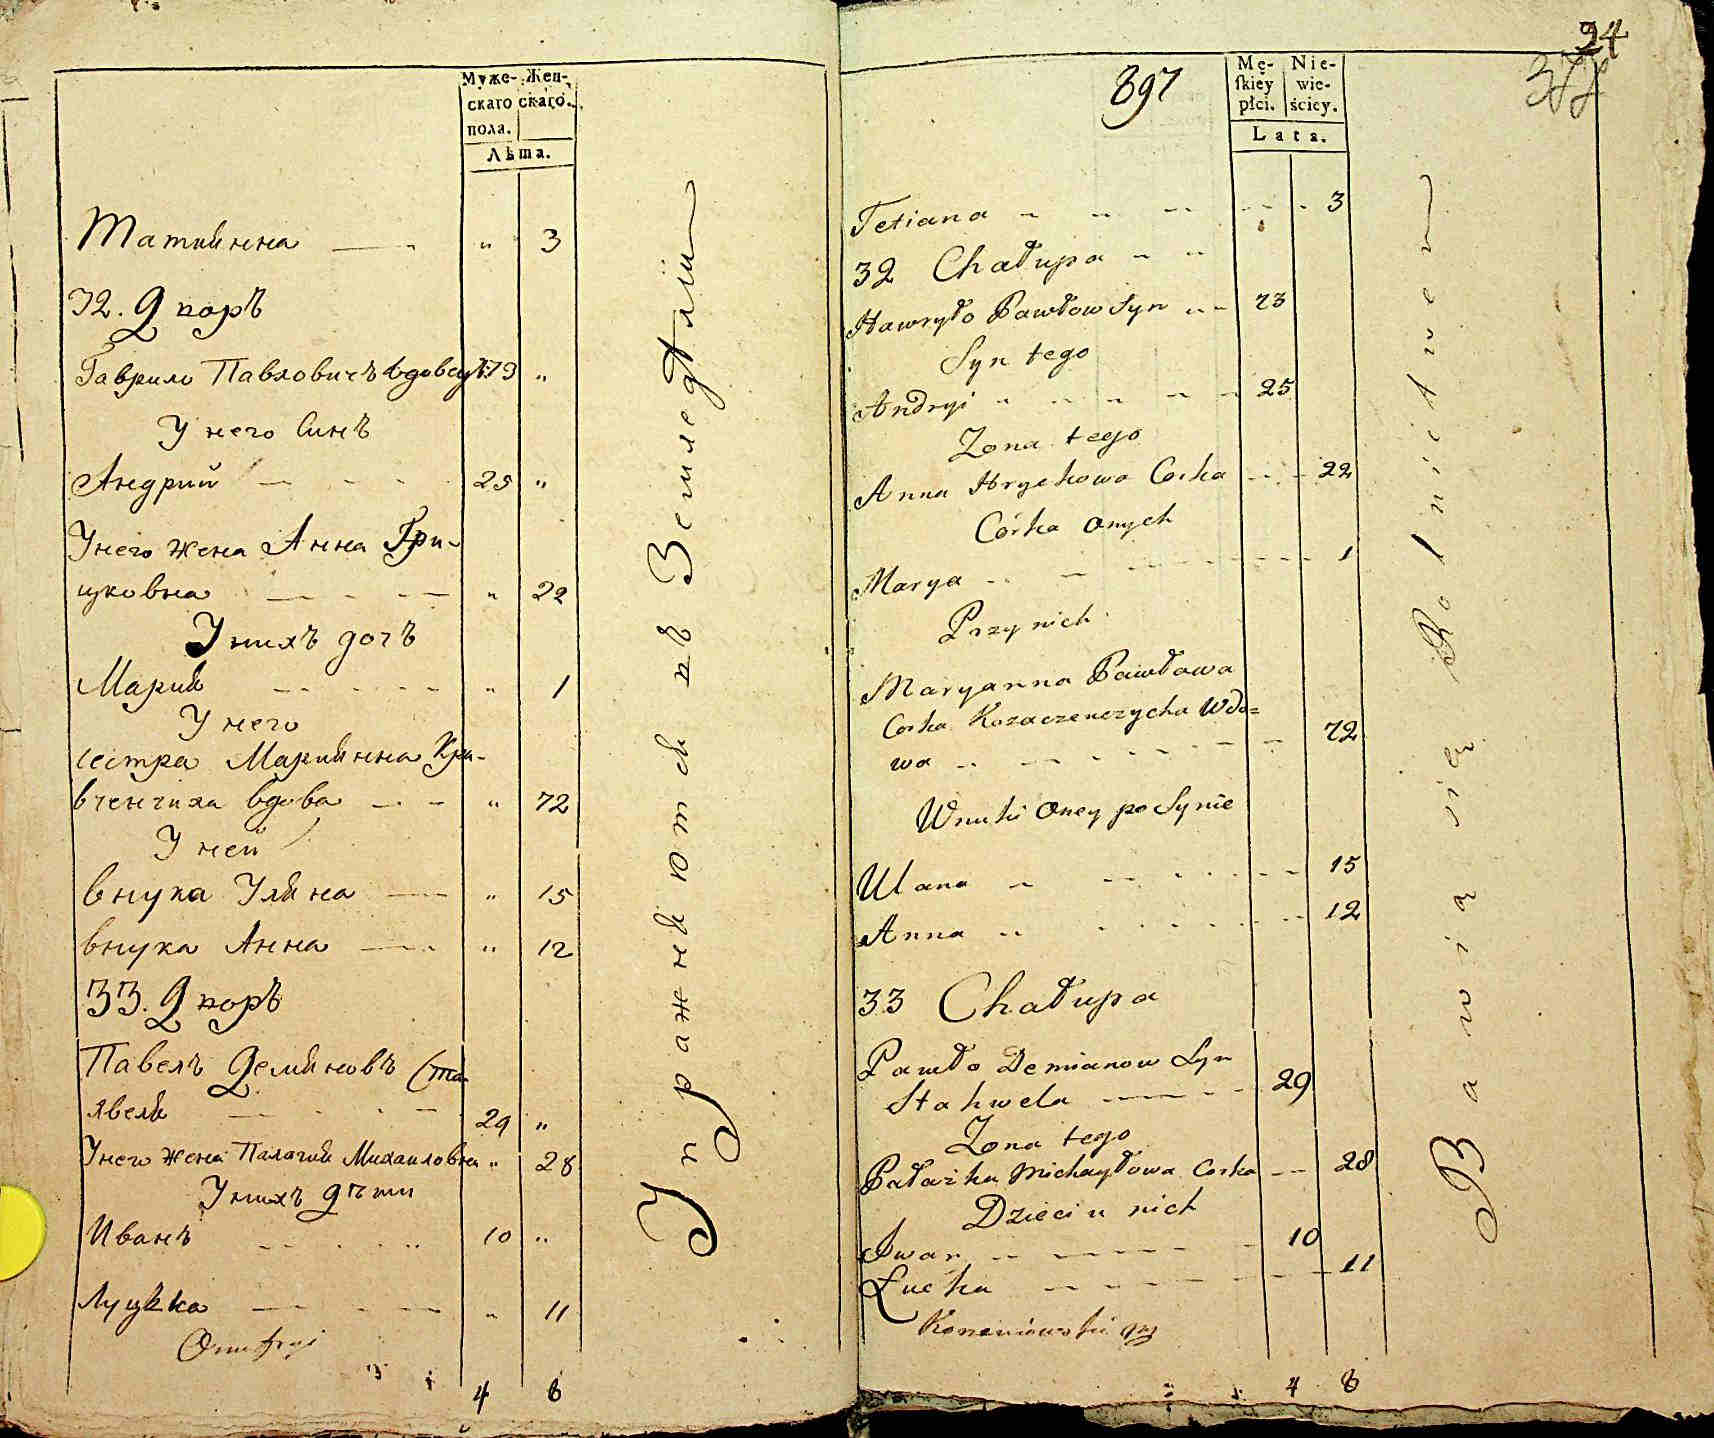 Муже- Жен-
скаго скаго.
пола.
Лѣта.
Татиянна — „ 3
32. Дворъ
Гаврило Павловичъ вдовец 73 „
У него Синъ
Андрий — 25 „
Унего жена Анна Гри-
цковна — „ 22
У нихъ дочъ
Мария — „ 1
У него
сестра Мариянна Кри-
вченчиха вдова — „ 72
У неи
внука Уляна — „ 15
внука Анна — „ 12
33. Дворъ
Павелъ Демяновъ Ста-
хвеля — 29 „
Унего жена Палагия Михаиловна „ 28
У нихъ дѣти
Иванъ — 10 „
Луцька — „ 11
Onufryi
4 8
Упражняются въ Земледѣлии
24
377
897
Mę- Nie-
skiéy wie-
płci. ściey.
Lata.
Tetiana — 3
32 Chałupa
Hawryło Pawłow Syn — 73
Syn tego
Andryi — 25
Zona tego
Anna Hryckowa Corka — 22
Córka onych
Marya — 1
Przy nich
Maryanna Pawłowa
Corka Kozaczenczycha Wdo=
wa — 72
Wnuki Oney po Synie
Ulana — 15
Anna — 12
33 Chałupa
Pawło Demianow Syn
Stahwela — 29
Zona tego
Pałażka Michayłowa Corka — 28
Dzieci u nich
Iwan — 10
Łucka — 11
Kononiowski
4 8
Bawią się Rolnictwem